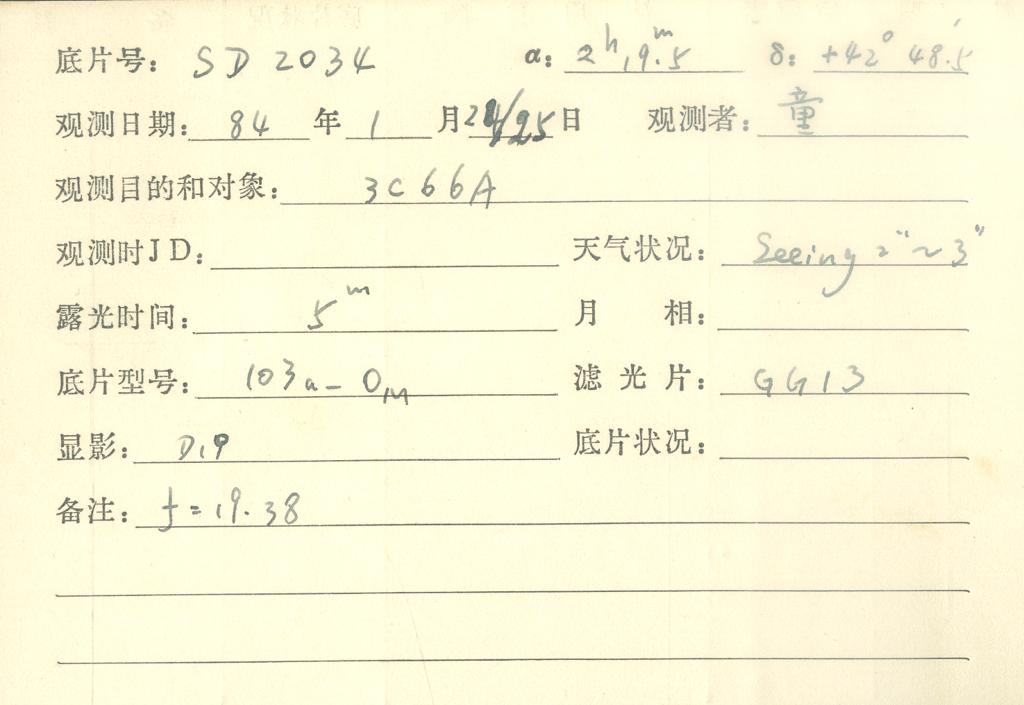 底片号: SD 2034 α: 2h 19m.5 δ: +42° 48'.5
观测日期: 84 年 1 月 24/25 日 观测者: 童
观测目的和对象: 3C66A
观测时JD: 天气状况: Seeing 2"~3"
露光时间: 5m 月 相:
底片型号: 103a-OM 滤光片: GG13
显影: D19 底片状况:
备注: f=19.38